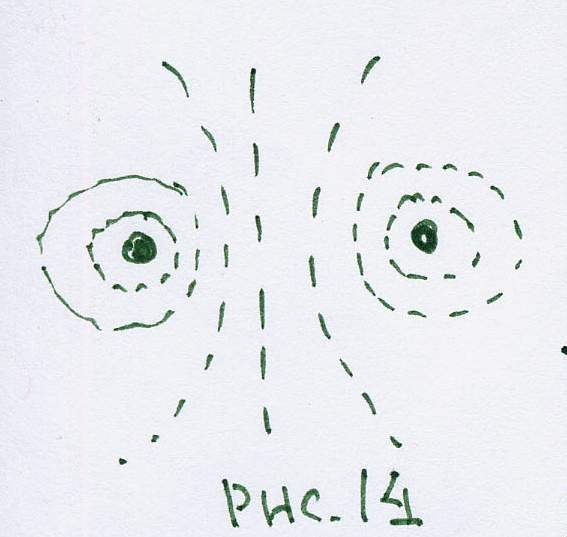 рис. 14